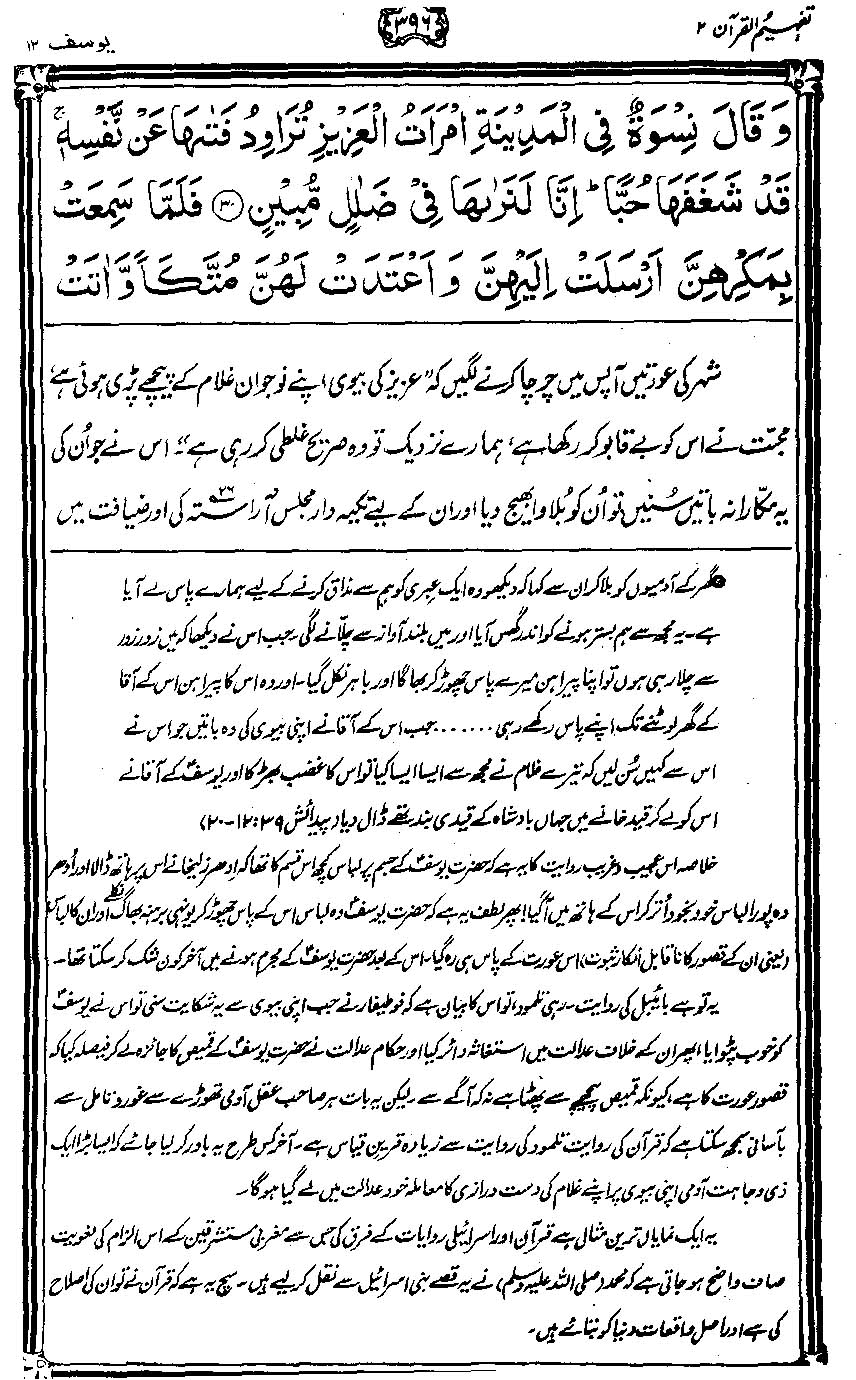 تفہیم القرآن ۲
۳۹۶
یوسف ۱۲
وَ قَالَ نِسْوَةٌ فِی الْمَدِیْنَةِ امْرَاَتُ الْعَزِیْزِ تُرَاوِدُ فَتٰىهَا عَنْ نَّفْسِهٖ ۚ
قَدْ شَغَفَهَا حُبًّا ؕ اِنَّا لَنَرٰىهَا فِیْ ضَلٰلٍ مُّبِیْنٍ ﴿۳۰﴾ فَلَمَّا سَمِعَتْ
بِمَكْرِهِنَّ اَرْسَلَتْ اِلَیْهِنَّ وَ اَعْتَدَتْ لَهُنَّ مُتَّكَاً وَّ اٰتَتْ
شہر کی عورتیں آپس میں چرچا کرنے لگیں کہ "عزیز کی بیوی اپنے نوجوان غلام کے پیچھے پڑی ہوئی ہے،
محبّت نے اس کو بے قابو کر رکھا ہے، ہمارے نزدیک تو وہ صریح غلطی کر رہی ہے"۔ اس نے جو اُن کی
یہ مکّارانہ باتیں سُنیں تو اُن کو بُلاوا بھیج دیا اور ان کے لیے تکیہ دار مجلس آراستہ ۲۶ کی اور ضیافت میں
گھر کے آدمیوں کو بلا کر ان سے کہا کہ دیکھو وہ ایک عبری کو ہم سے مذاق کرنے کے لیے ہمارے پاس لے آیا
ہے۔ یہ مجھ سے ہم بستر ہونے کو اندر گھس آیا اور میں بلند آواز سے چلّانے لگی۔ جب اس نے دیکھا کہ میں زور زور
سے چلّا رہی ہوں تو اپنا پیراہن میرے پاس چھوڑ کر بھاگا اور باہر نکل گیا۔ اور وہ اس کا پیراہن اس کے آقا
کے گھر لوٹنے تک اپنے پاس رکھے رہی ....... جب اس کے آقا نے اپنی بیوی کی وہ باتیں جو اس نے
اس سے کہیں سُن لیں کہ تیرے غلام نے مجھ سے ایسا ایسا کیا تو اس کا غضب بھڑکا اور یوسفؑ کے آقا نے
اس کو لے کر قید خانے میں جہاں بادشاہ کے قیدی بند تھے ڈال دیا (پیدائش ۳۹:۱۲-۲۰)
خلاصہ اس عجیب و غریب روایت کا یہ ہے کہ حضرت یوسفؑ کے جسم پر لباس کچھ اس قسم کا تھا کہ اِدھر زلیخا نے اس پر ہاتھ ڈالا اور اُدھر
وہ پورا لباس خود بخود اُتر کر اس کے ہاتھ میں آگیا! پھر لطف یہ ہے کہ حضرت یوسفؑ وہ لباس اس کے پاس چھوڑ کر یونہی برہنہ بھاگ نکلے اور ان کا لباس
(یعنی ان کے قصور کا ناقابل انکار ثبوت) اس عورت کے پاس ہی رہ گیا۔ اس کے بعد حضرت یوسفؑ کے مجرم ہونے میں آخر کون شک کر سکتا تھا۔
یہ تو ہے بائیبل کی روایت۔ رہی تلمود، تو اس کا بیان ہے کہ فوطیفار نے جب اپنی بیوی سے یہ شکایت سنی تو اس نے یوسفؑ
کو خوب پٹوایا، پھر ان کے خلاف عدالت میں استغاثہ دائر کیا اور حکام عدالت نے حضرت یوسفؑ کے قمیص کا جائزہ لے کر فیصلہ کیا کہ
قصور عورت کا ہے، کیونکہ قمیص پیچھے سے پھٹا ہے نہ کہ آگے سے ۔ لیکن یہ بات ہر صاحب عقل آدمی تھوڑے سے غور و تامل سے
بآسانی سمجھ سکتا ہے کہ قرآن کی روایت تلمود کی روایت سے زیادہ قرین قیاس ہے۔ آخر کس طرح یہ باور کر لیا جائے کہ ایسا بڑا ایک
ذی وجاہت آدمی اپنی بیوی پر اپنے غلام کی دست درازی کا معاملہ خود عدالت میں لے گیا ہوگا۔
یہ ایک نمایاں ترین مثال ہے قرآن اور اسرائیلی روایات کے فرق کی جس سے مغربی مستشرقین کے اس الزام کی لغویت
صاف واضح ہو جاتی ہے کہ محمد (صلی اللہ علیہ وسلم) نے یہ قصے بنی اسرائیل سے نقل کر لیے ہیں۔ سچ یہ ہے کہ قرآن نے تو ان کی اصلاح
کی ہے اور اصل واقعات دنیا کو بتائے ہیں۔